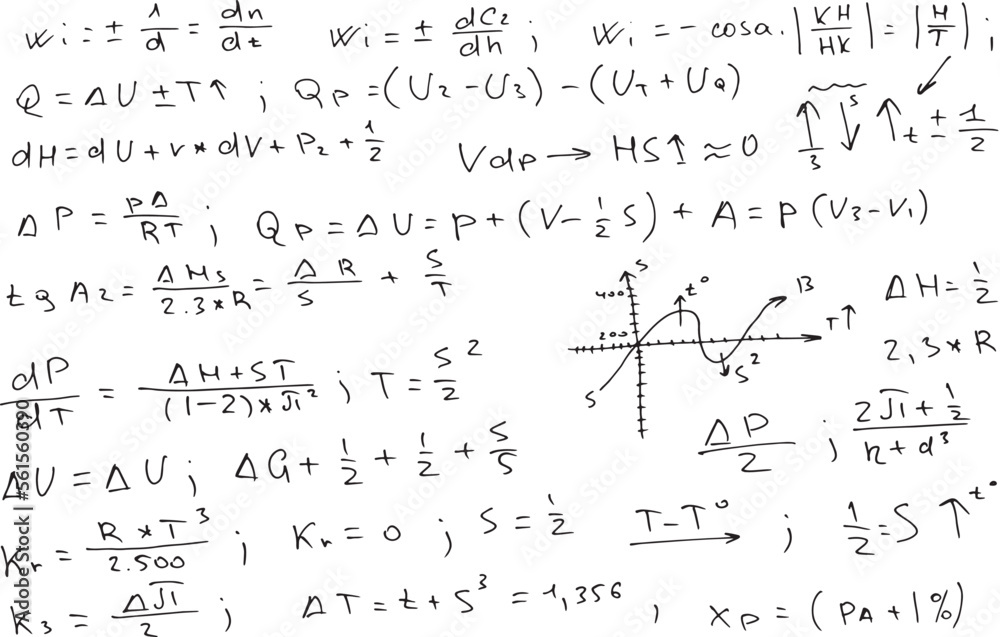 Wi = ± 1/d = dn/dt    Wi = ± dC2/dh ;    Wi = - cosa. |KH/HK| = |H/T| ;
Q = ΔU ± T↑ ; Qp = (U2 - U3) - (UT + UQ)
3↑ s↓ ↑t ± 1/2
dH = dU + v * dV + P2 + 1/2    Vdp → HS↑ ≈ 0
ΔP = pΔ/RT ; Qp = ΔU = p + (V - 1/2 S) + A = p (V3 - V1)
tg A2 = ΔHs/2.3*R = ΔR/S + S/T
S 400 200 t° B T↑ S S²
ΔH = 1/2
2,3 * R
dP/dT = ΔH + ST/(1-2)*π² ; T = S/2 ²
ΔP/2 ; 2π + 1/2/n + d³
ΔU = ΔU ; ΔG + 1/2 + 1/2 + S/S
Kr = R * T³/2.500 ; Kr = 0 ; S = 1/2    T-T° → ; 1/2 = S ↑t°
K3 = Δπ/2 ; ΔT = t + S³ = 1,356 , Xp = (PA + 1%)
Adobe Stock | #561560390
Adobe Stock